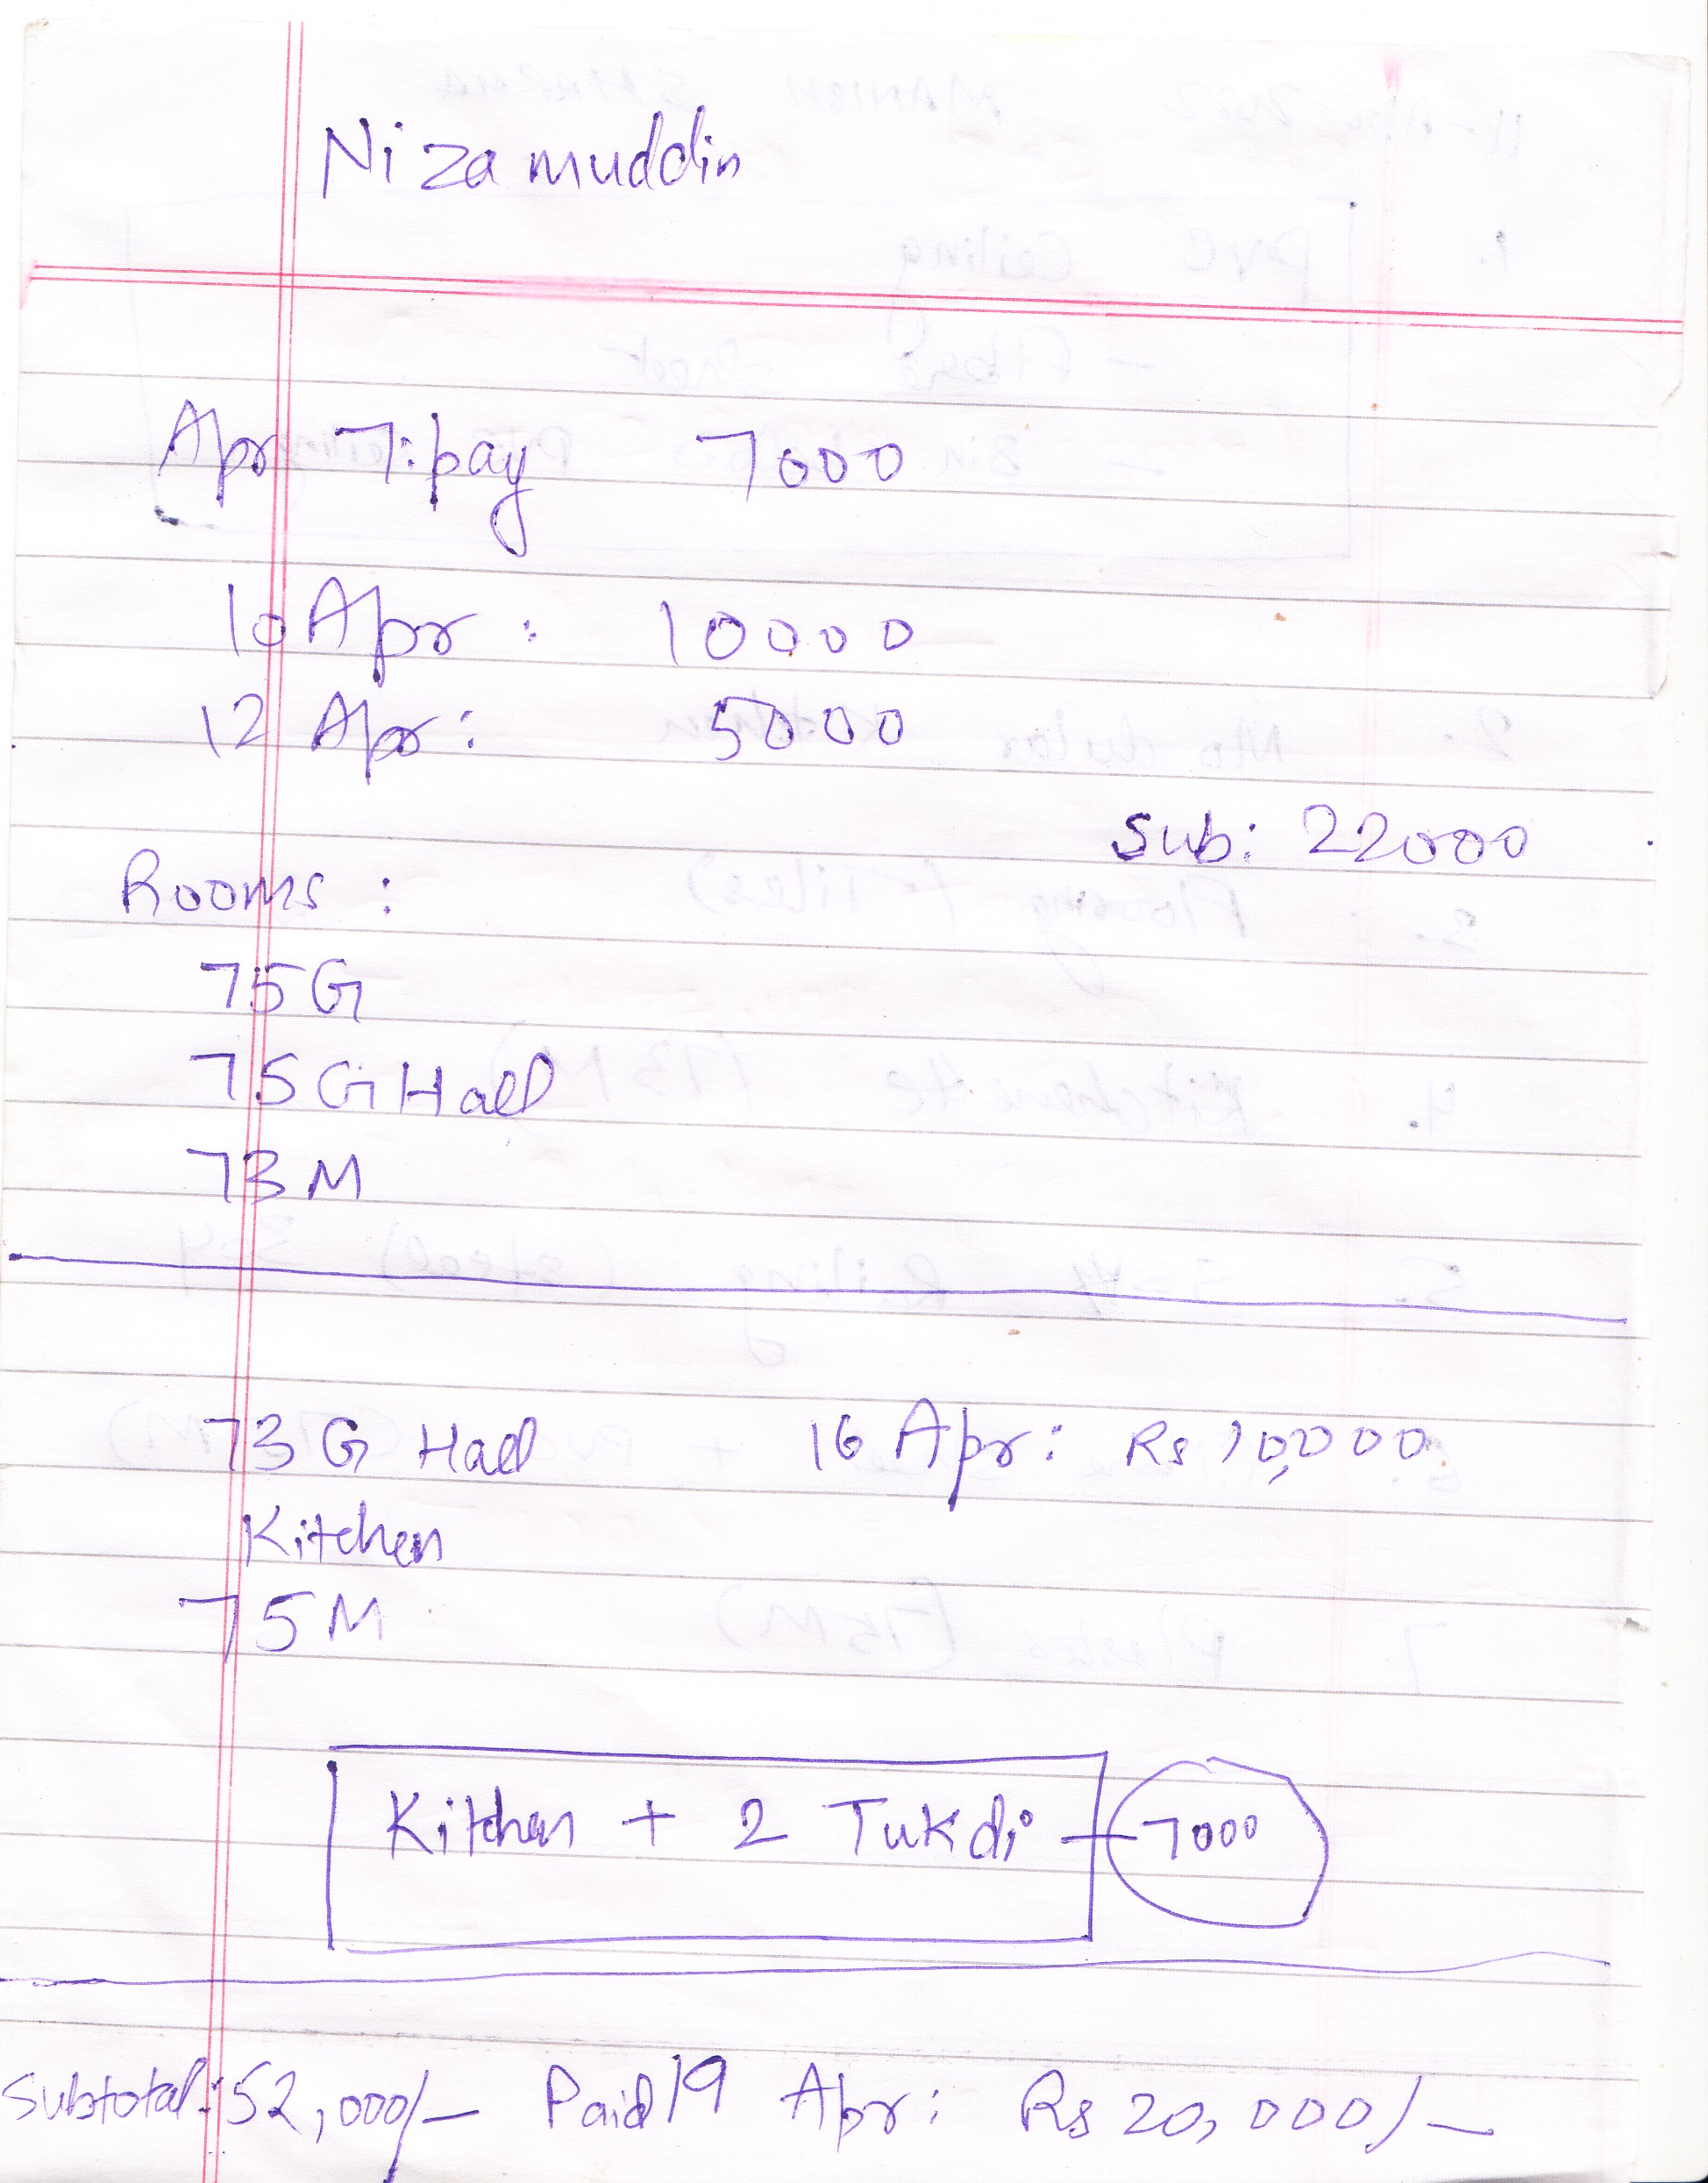 Nizamuddin
Apr 7: pay 7000
10 Apr : 10000
12 Apr : 5000
Sub: 22000
Rooms :
75G
75G Hall
73M
73 G Hall 16 Apr : Rs 10,000
Kitchen
75M
Kitchen + 2 Tukdi - 7000
Subtotal: 52,000/- Paid 19 Apr : Rs 20,000/-